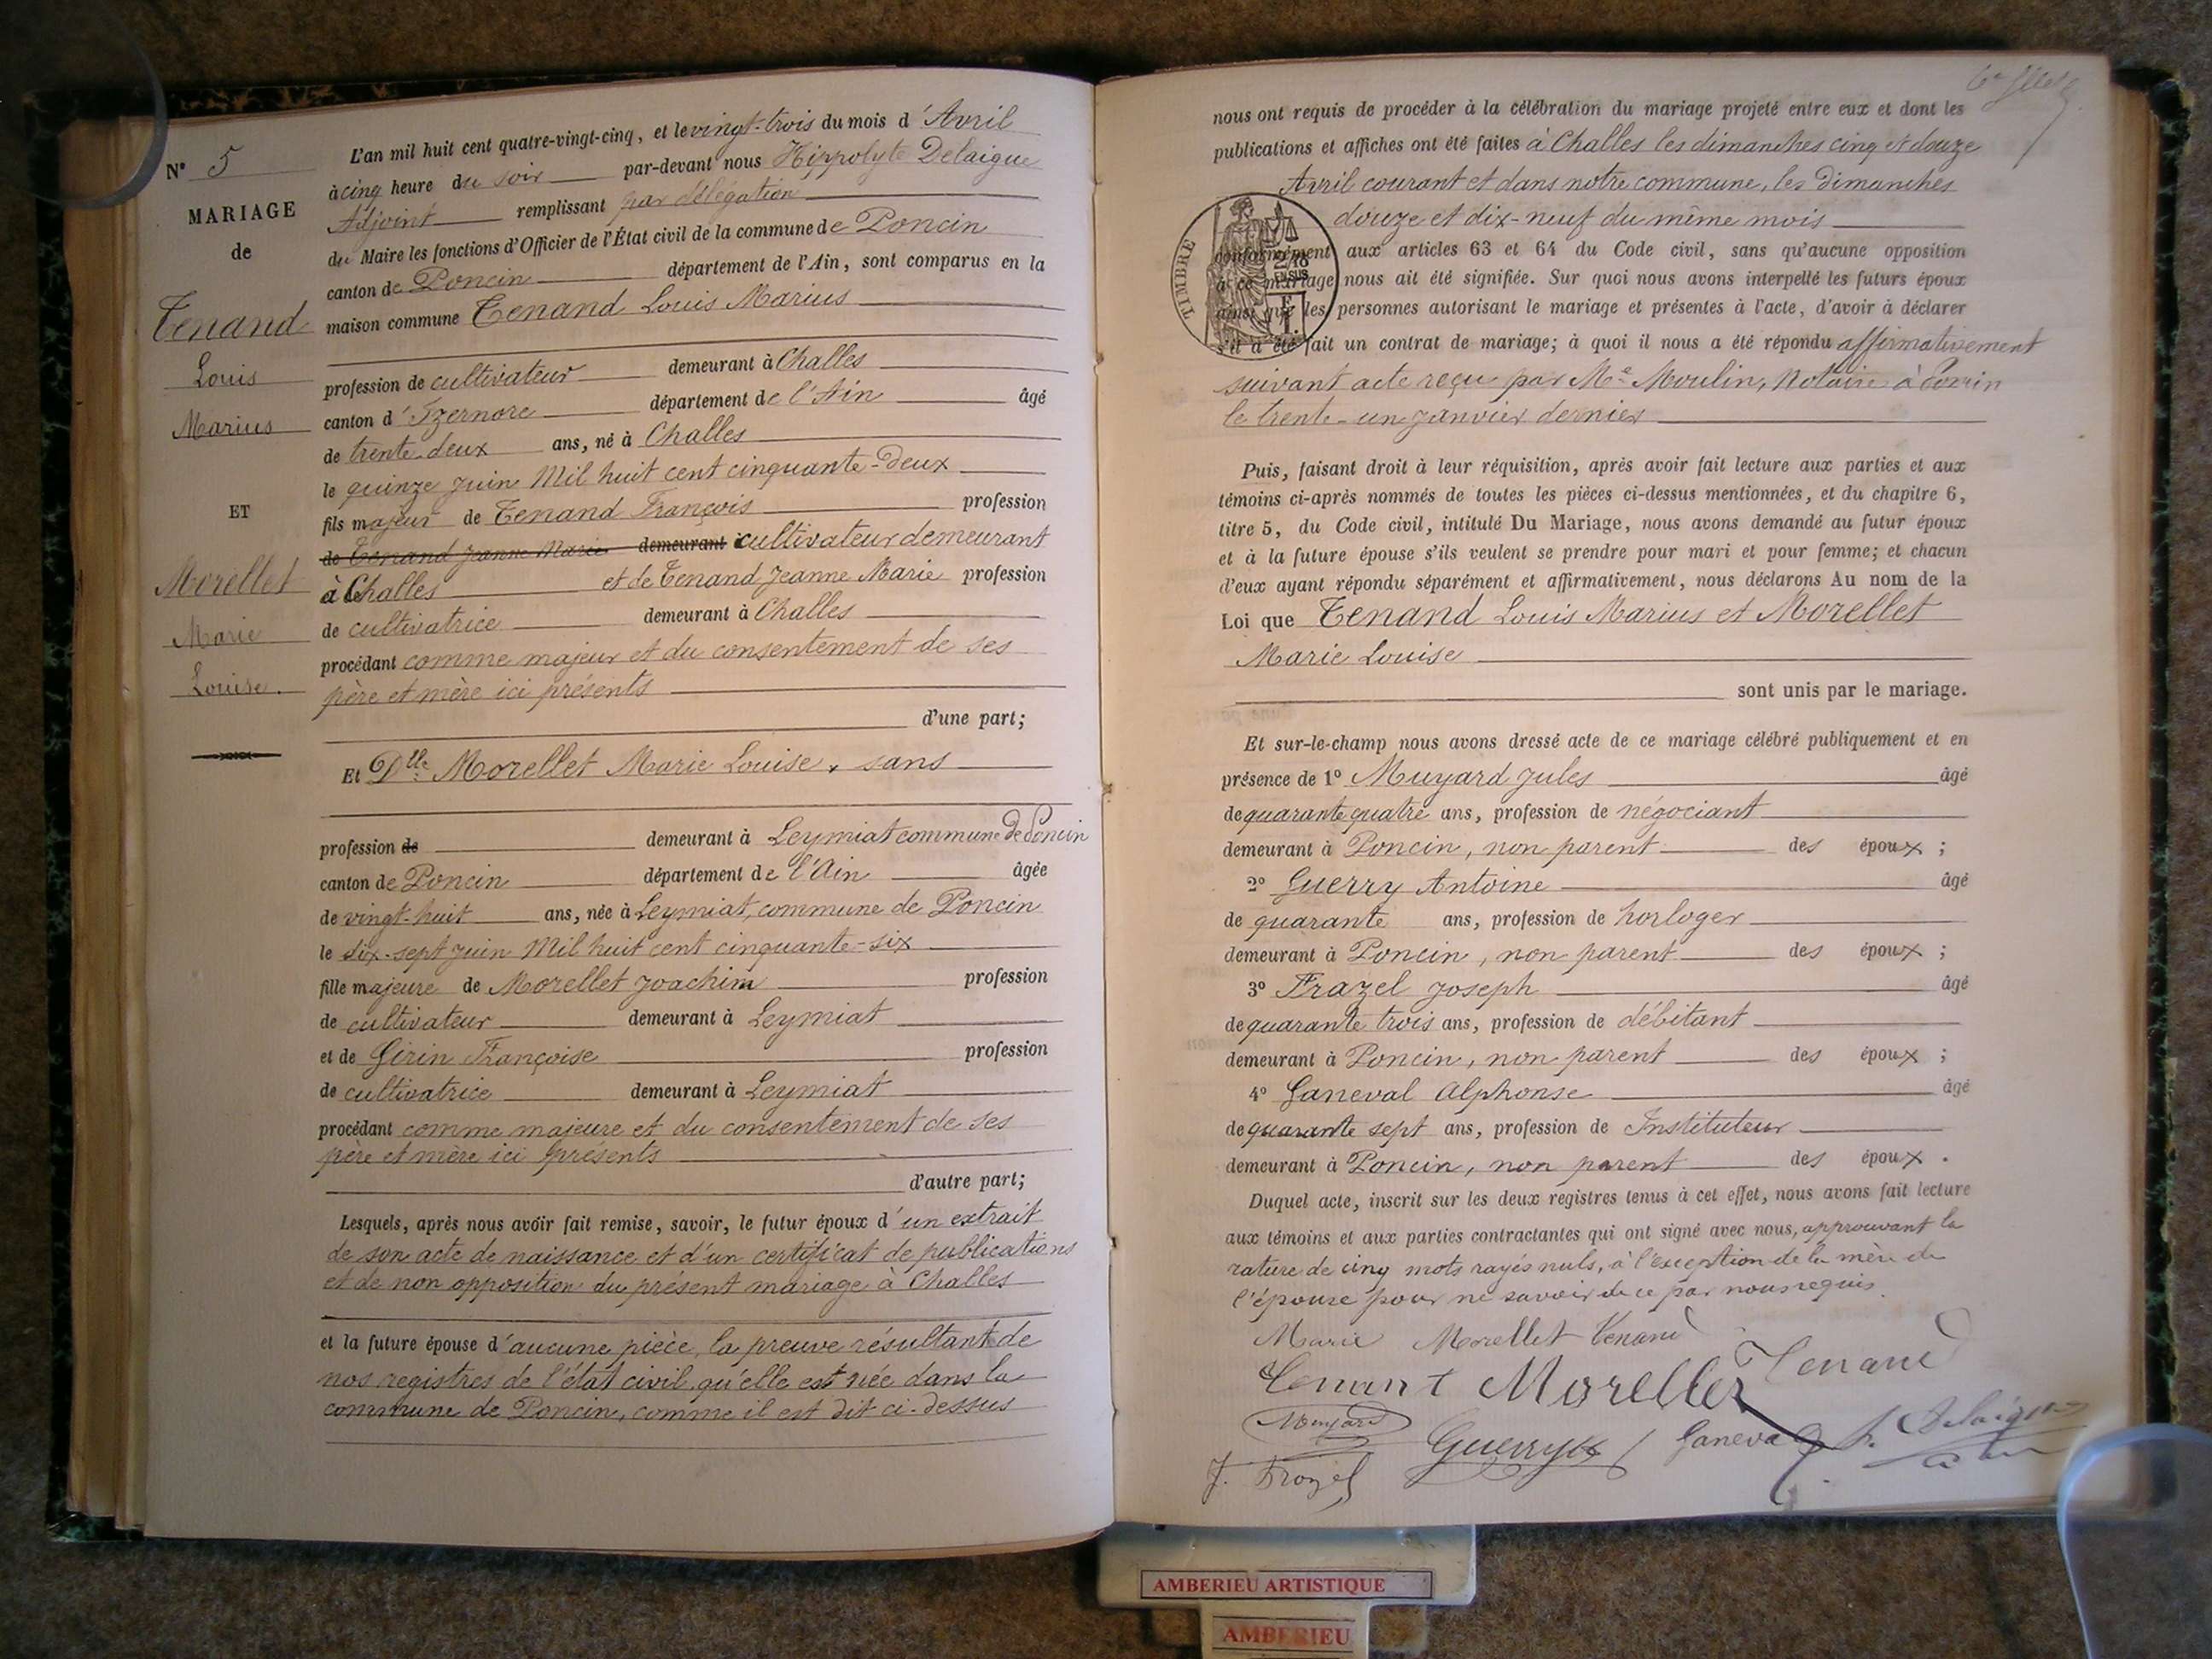 N° 5
MARIAGE
de
Tenand
Louis
Marius
ET
Morellet
Marie
Louise.
L'an mil huit cent quatre-vingt-cinq, et le vingt-trois du mois d'Avril
à cinq heure du soir par-devant nous Hippolyte Delaigue
Adjoint remplissant par délégation
du Maire les fonctions d'Officier de l'État civil de la commune de Poncin
canton de Poncin département de l'Ain, sont comparus en la
maison commune Tenand Louis Marius
profession de cultivateur demeurant à Challes
canton d'Izernore département de l'Ain âgé
de trente-deux ans, né à Challes
le quinze Juin Mil huit cent cinquante-deux
fils majeur de Tenand François profession
de Tenand Jeanne Marie demeurant cultivateur demeurant
à Challes et de Tenand Jeanne Marie profession
de cultivatrice demeurant à Challes
procédant comme majeur et du consentement de ses
père et mère ici présents
d'une part;
Et Dlle Morellet Marie Louise, sans
profession de demeurant à Leymiat commune de Poncin
canton de Poncin département de l'Ain âgée
de vingt-huit ans, née à Leymiat, commune de Poncin
le dix-sept Juin Mil huit cent cinquante-six
fille majeure de Morellet Joachim profession
de cultivateur demeurant à Leymiat
et de Girin Françoise profession
de cultivatrice demeurant à Leymiat
procédant comme majeure et du consentement de ses
père et mère ici présents
d'autre part;
Lesquels, après nous avoir fait remise, savoir, le futur époux d'un extrait
de son acte de naissance et d'un certificat de publications
et de non opposition du présent mariage à Challes
et la future épouse d'aucune pièce, la preuve résultant de
nos registres de l'état civil qu'elle est née dans la
commune de Poncin, comme il est dit ci-dessus
nous ont requis de procéder à la célébration du mariage projeté entre eux et dont les
publications et affiches ont été faites à Challes les dimanches cinq et douze
Avril courant et dans notre commune, les Dimanches
douze et dix-neuf du même mois
conformément aux articles 63 et 64 du Code civil, sans qu'aucune opposition
à ce mariage nous ait été signifiée. Sur quoi nous avons interpellé les futurs époux
ainsi que les personnes autorisant le mariage et présentes à l'acte, d'avoir à déclarer
s'il a été fait un contrat de mariage; à quoi il nous a été répondu affirmativement
suivant acte reçu par Me Moulin, Notaire à Poncin
le trente-un Janvier dernier
TIMBRE
EN SUS
Puis, faisant droit à leur réquisition, après avoir fait lecture aux parties et aux
témoins ci-après nommés de toutes les pièces ci-dessus mentionnées, et du chapitre 6,
titre 5, du Code civil, intitulé Du Mariage, nous avons demandé au futur époux
et à la future épouse s'ils veulent se prendre pour mari et pour femme; et chacun
d'eux ayant répondu séparément et affirmativement, nous déclarons Au nom de la
Loi que Tenand Louis Marius et Morellet
Marie Louise
sont unis par le mariage.
Et sur-le-champ nous avons dressé acte de ce mariage célébré publiquement et en
présence de 1° Muyard Jules âgé
de quarante quatre ans, profession de négociant
demeurant à Poncin, non parent des époux ;
2° Guerry Antoine âgé
de quarante ans, profession de horloger
demeurant à Poncin, non parent des époux ;
3° Frazel Joseph âgé
de quarante trois ans, profession de débitant
demeurant à Poncin, non parent des époux ;
4° Ganeval Alphonse âgé
de quarante sept ans, profession de Instituteur
demeurant à Poncin, non parent des époux .
Duquel acte, inscrit sur les deux registres tenus à cet effet, nous avons fait lecture
aux témoins et aux parties contractantes qui ont signé avec nous, approuvant la
rature de cinq mots rayés nuls, à l'exception de la mère de
l'épouse pour ne savoir de ce par nous requis.
Marie Morellet Tenand
Tenant Morellet Tenand
Muyard Guerry Ganeval
J. Frazel
AMBERIEU ARTISTIQUE
AMBERIEU